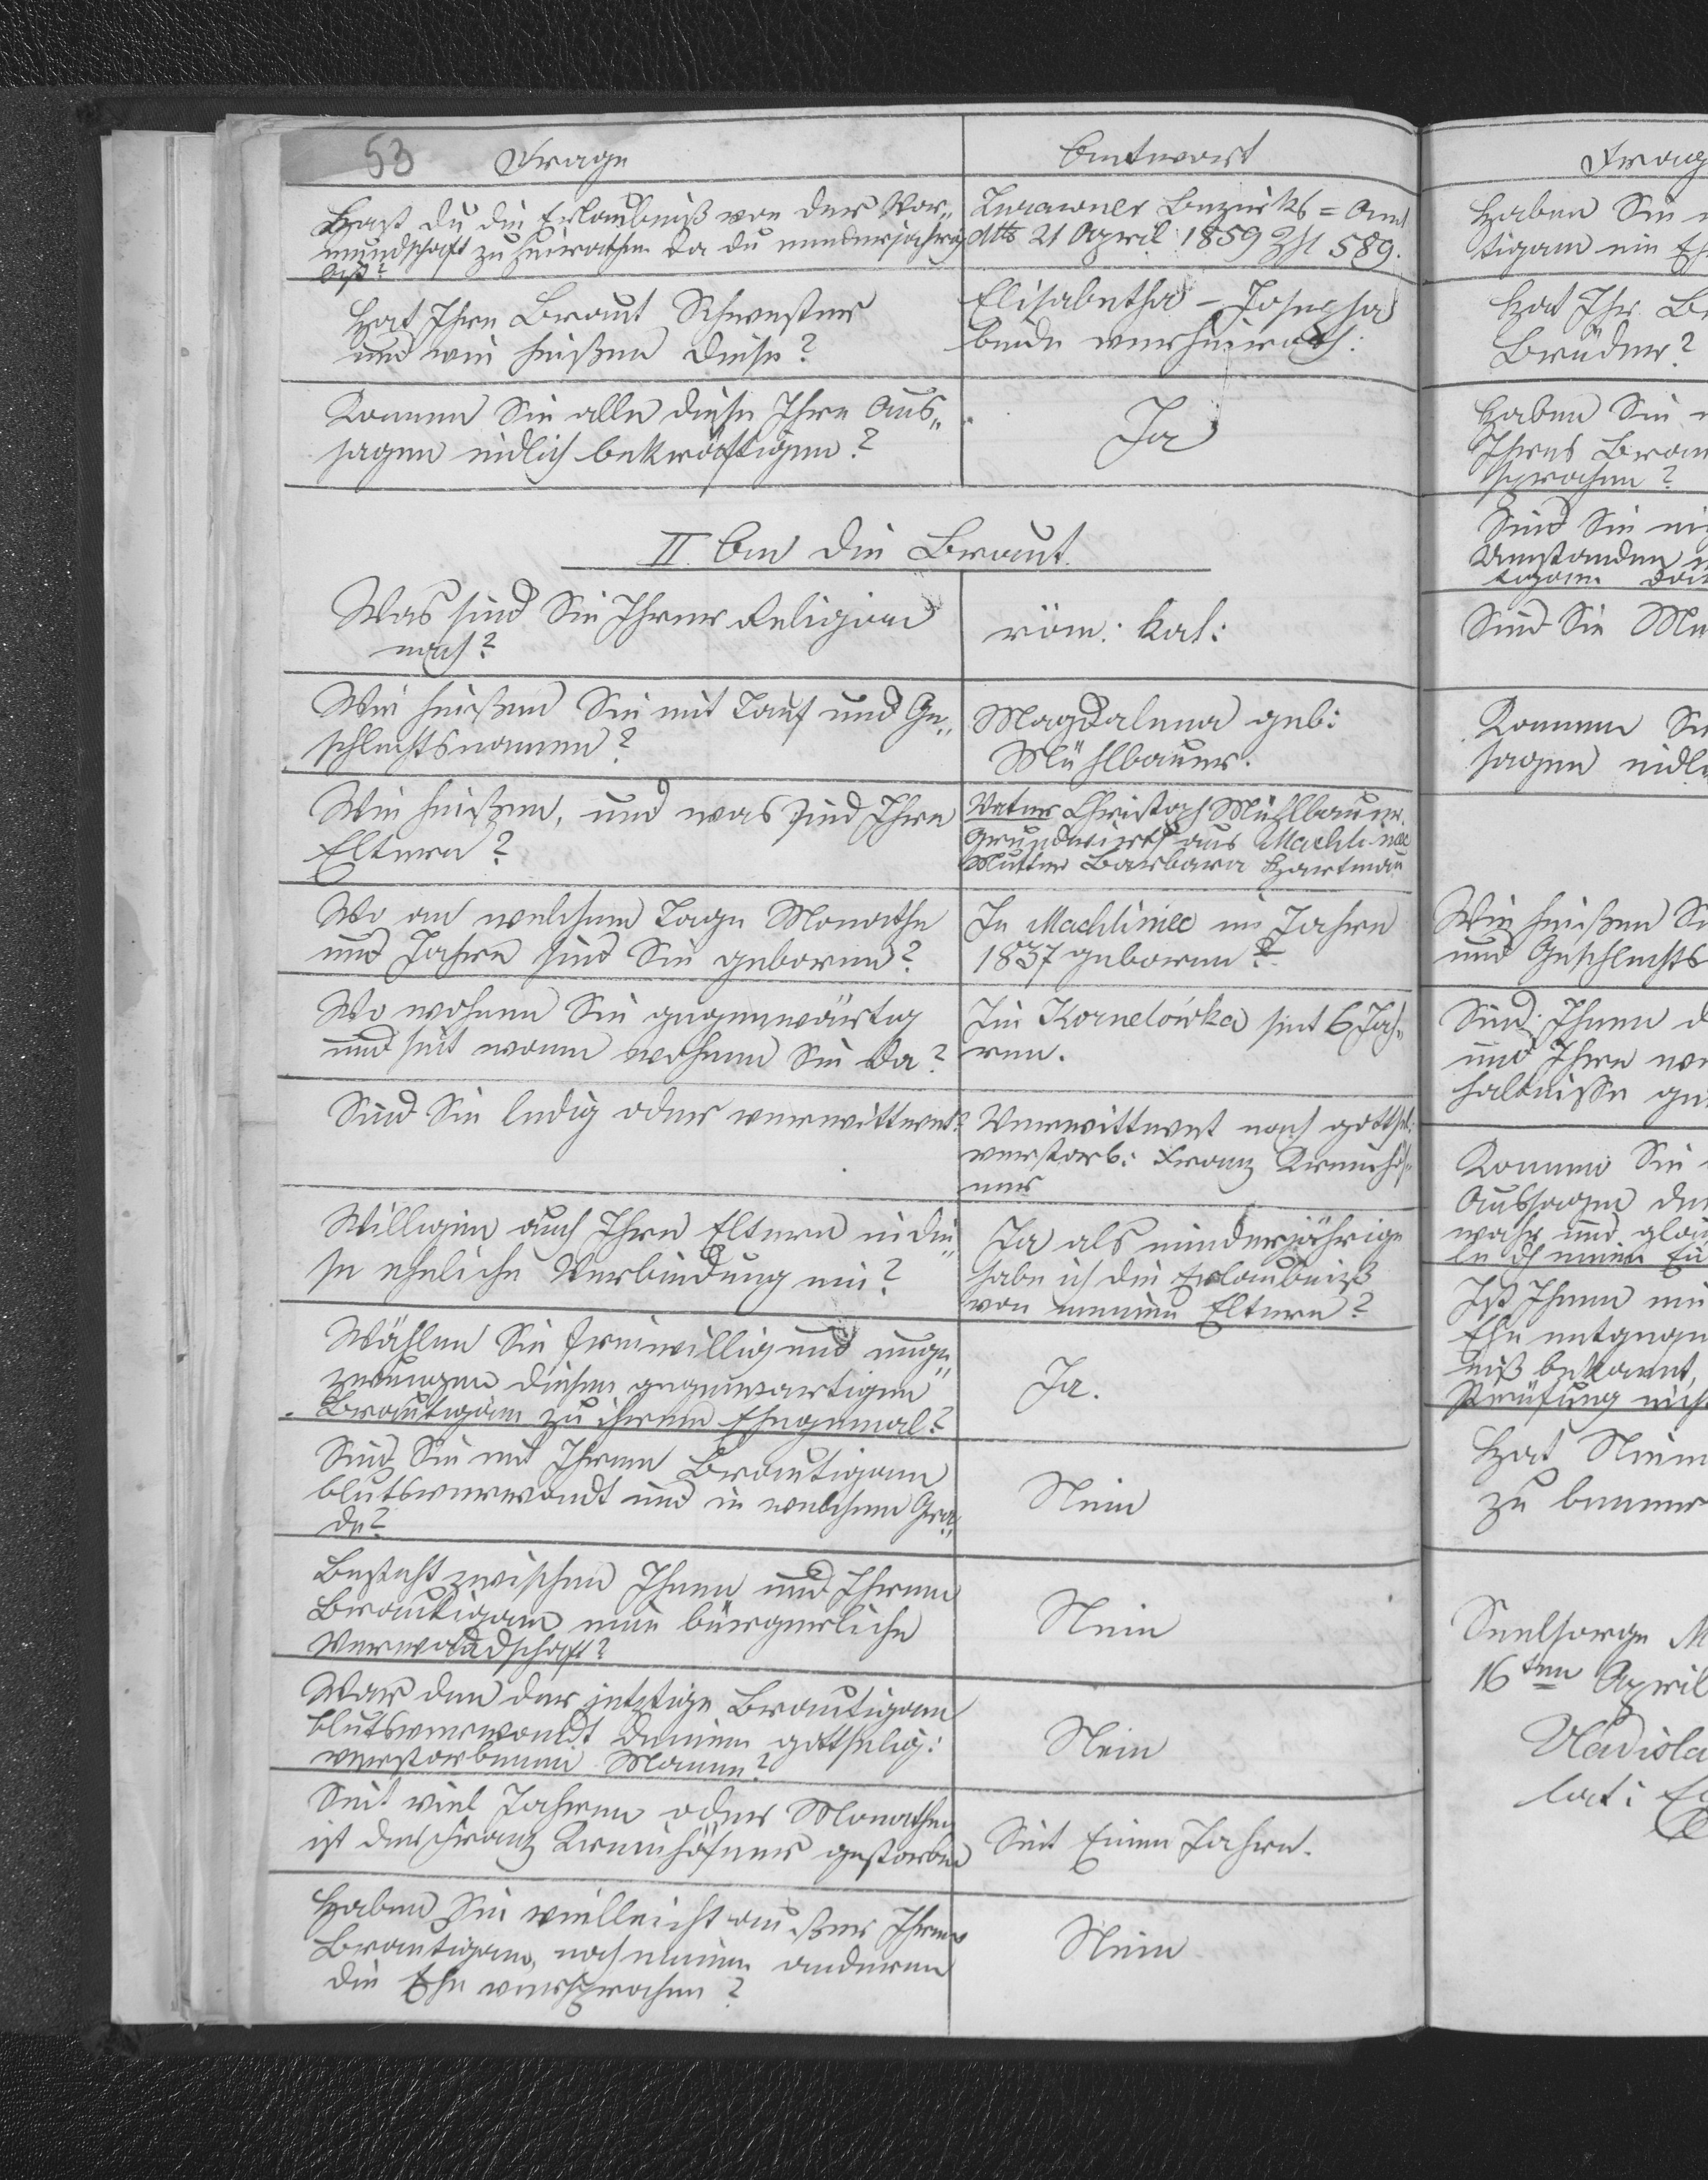 53 Frage Antwort
Hast du die Erlaubniß von der Vor„
mundschaft zu heirathen da du minderjahrig
bist?
Zurawner Bezirks = Amt
dtto 21 April 1859 Zhl 589.
Hat Ihre Braut Schwester
und wie heißen diese?
Elisabetha – Josepha
beide verheirath:
Konnen Sie alle diese Ihre Aus„
sagen eidlich bekräftigen?
Ja
II. An die Braut.
Was sind Sie Ihrer Religion
nach?
röm: kat:
Wie heißen Sie mit Tauf und Ge„
schlechtsnamen?
Magdalena geb:
Mühlbauer.
Wie heißen, und was sind Ihre
Eltern?
Vater Christoph Mühlbauer.
Grundwirth aus Machliniec
Mutter Barbara Hartman
Wo an welchem Tage Monathe
und Jahre sind Sie geboren?
In Machliniec im Jahre
1837 geboren
Wo wohnen Sie gegenwärtig
und seit wann wohnen Sie da?
In Kornelówka seit 6 Jah„
ren.
Sind Sie ledig oder verwittwet?
Verwittwet nach gottsel:
verstorb: Franz Kreuhöf„
ner
Willigen auch Ihre Eltern in die„
se eheliche Verbindung ein?
Ja als minderjährige
habe ich die Erlaubniß
von meinen Eltern?
Wählen Sie freiwillig und unge„
zwungen diesen gegenwartigen
Brautigam zu ihrem Ehegemal?
Ja.
Sind Sie mit Ihrem Brautigam
blutsverwandt und in welchem Gra„
de?
Nein
Besteht zwischen Ihnen und Ihrem
Brautigam eine bürgerliche
Verwandschaft?
Nein
War den der jetztige Brautigam
blutsverwandt deinem gottselig:
verstorbenen Manne?
Nein
Seit viel Jahren oder Monathen
ist der Franz Kreuhöfner gestorben
Seit Einem Jahre.
Haben Sie vielleicht außer Ihrem
Brautigam, noch einem anderen
die Ehe versprochen?
Nein
Frag
Haben Sie
tigam ein Eh
Hat Ihr B
Brüder?
Haben Sie
Ihres Brau
sprochen?
Sind Sie
Umstanden
tigam
Sind Sie M
Konnen Si
sagen eidl
Wie heißen S
und Geschlechts
Sind Ihnen d
und Ihre
haltnisse
Konnen Sie
Aussagen
wahr und
Ist Ihnen
Ehe entgegen
niß bekannt,
Prüfung nich
Hat Niem
zu bemer
Seelsorge M
16ten April
Uladisla
lat: